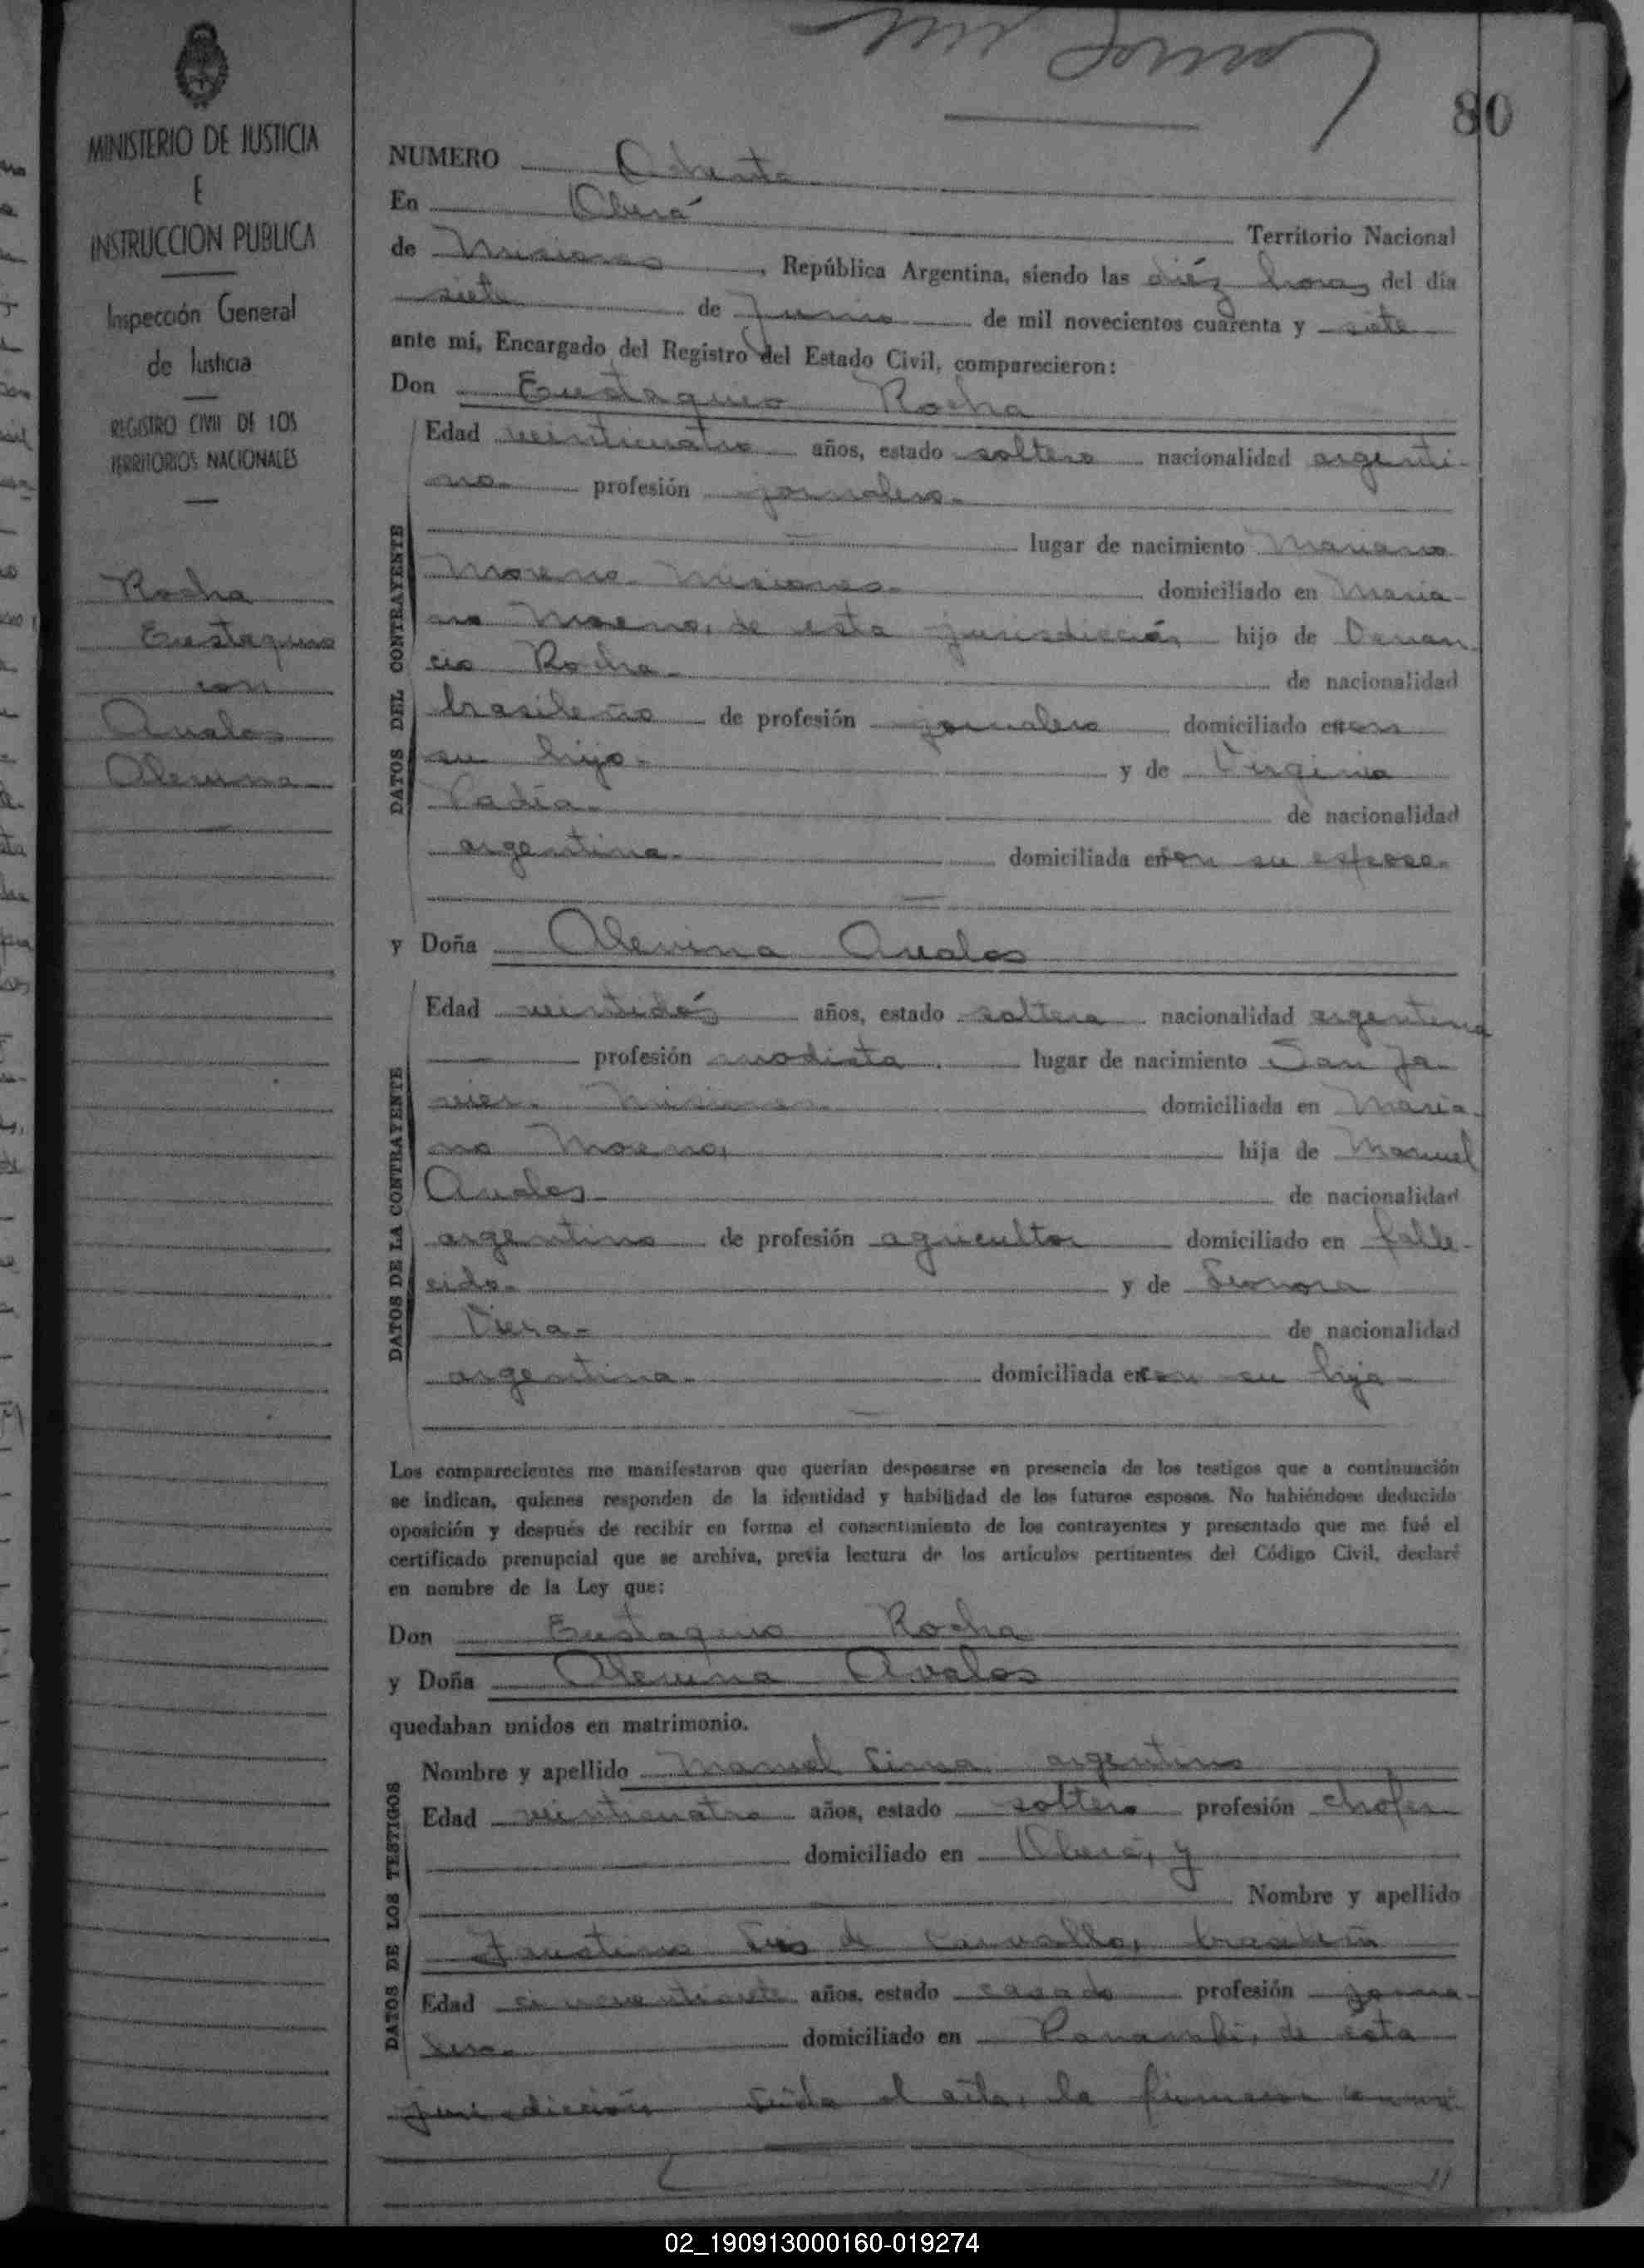 80
MINISTERIO DE JUSTICIA
E
INSTRUCCION PUBLICA
Inspección General
de Justicia
REGISTRO CIVIL DE LOS
TERRITORIOS NACIONALES
Rocha
Eustaquio
con
Avalos
Alevina
NUMERO Ochenta
En Oberá
Territorio Nacional
de Misiones, República Argentina, siendo las diéz horas del día
siete de Junio de mil novecientos cuarenta y siete
ante mí, Encargado del Registro del Estado Civil, comparecieron:
Don Eustaquio Rocha
DATOS DEL CONTRAYENTE
Edad veinticuatro años, estado soltero nacionalidad argenti-
no- profesión jornalero-
lugar de nacimiento Mariano
Moreno- Misiones- domiciliado en Maria-
no Moreno, de esta jurisdicción hijo de Venan-
cio Rocha- de nacionalidad
brasileño de profesión jornalero domiciliado con
su hijo- y de Virginia
Padia- de nacionalidad
argentina- domiciliada con su esposo-
y Doña Alevina Avalos
DATOS DE LA CONTRAYENTE
Edad veintidós años, estado soltera nacionalidad argentina
profesión modista lugar de nacimiento San Ja-
vier- Misiones- domiciliada en Maria-
no Moreno, hija de Manuel
Avalos- de nacionalidad
argentino de profesión agricultor domiciliado en falle-
cido- y de Leonora
Viera- de nacionalidad
argentina- domiciliada con su hija-
Los comparecientes me manifestaron que querían desposarse en presencia de los testigos que a continuación
se indican, quienes responden de la identidad y habilidad de los futuros esposos. No habiéndose deducido
oposición y después de recibir en forma el consentimiento de los contrayentes y presentado que me fué el
certificado prenupcial que se archiva, previa lectura de los artículos pertinentes del Código Civil, declaré
en nombre de la Ley que:
Don Eustaquio Rocha
y Doña Alevina Avalos
quedaban unidos en matrimonio.
DATOS DE LOS TESTIGOS
Nombre y apellido Manuel Lima argentino
Edad veinticuatro años, estado soltero profesión chofer
domiciliado en Oberá, y
Nombre y apellido
Faustino de Carvallo, brasileño
Edad cincuentisiete años, estado casado profesión jorna-
lero- domiciliado en Panambí, de esta
jurisdicción Leida el acta, la firmaron
02_190913000160-019274